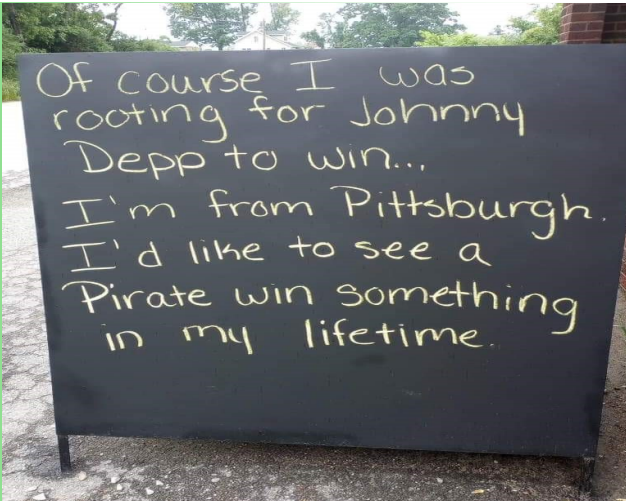 Of course I was
rooting for Johnny
Depp to win...
I'm from Pittsburgh.
I'd like to see a
Pirate win something
in my lifetime.